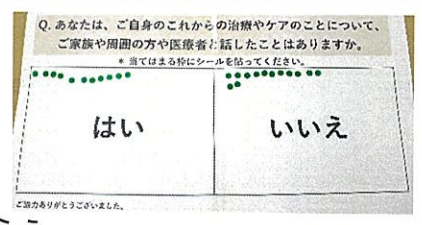 Q. あなたは、ご自身のこれからの治療やケアのことについて、
ご家族や周囲の方や医療者と話したことはありますか。
* 当てはまる枠にシールを貼ってください。
はい
いいえ
ご協力ありがとうございました。